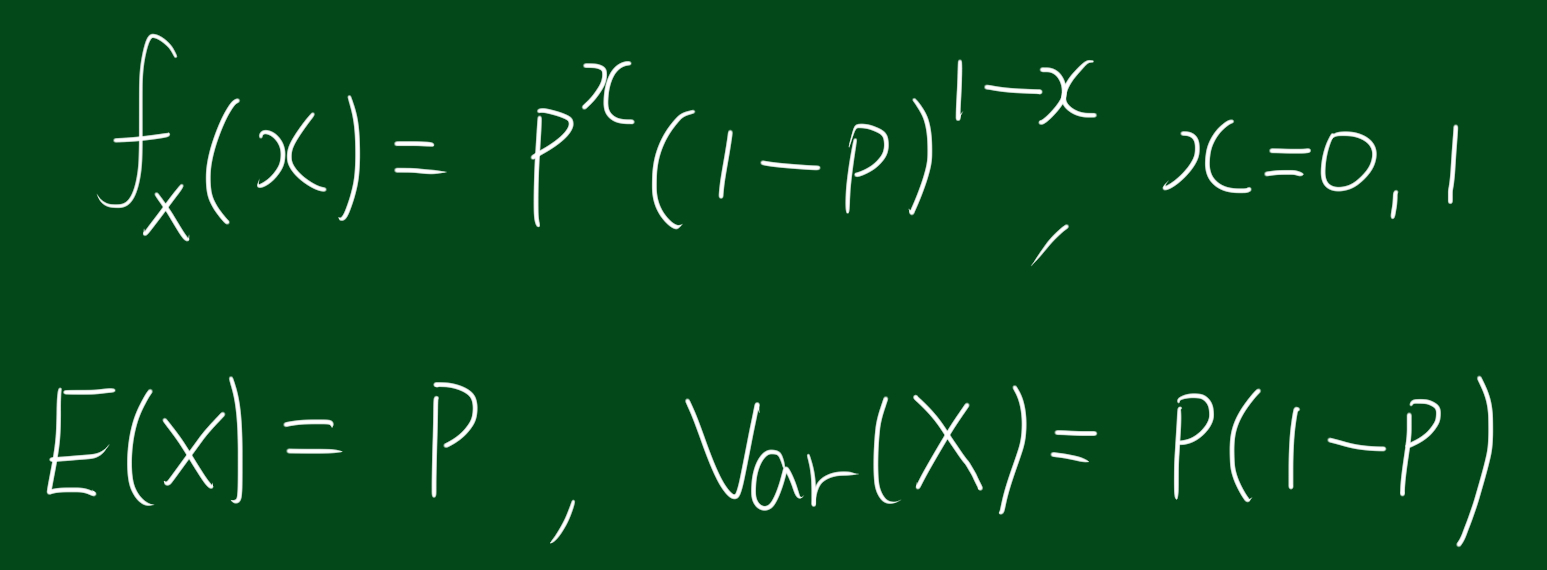 f_X(x) = p^x (1-p)^{1-x}, x=0,1
E(X) = P, Var(X) = P(1-P)